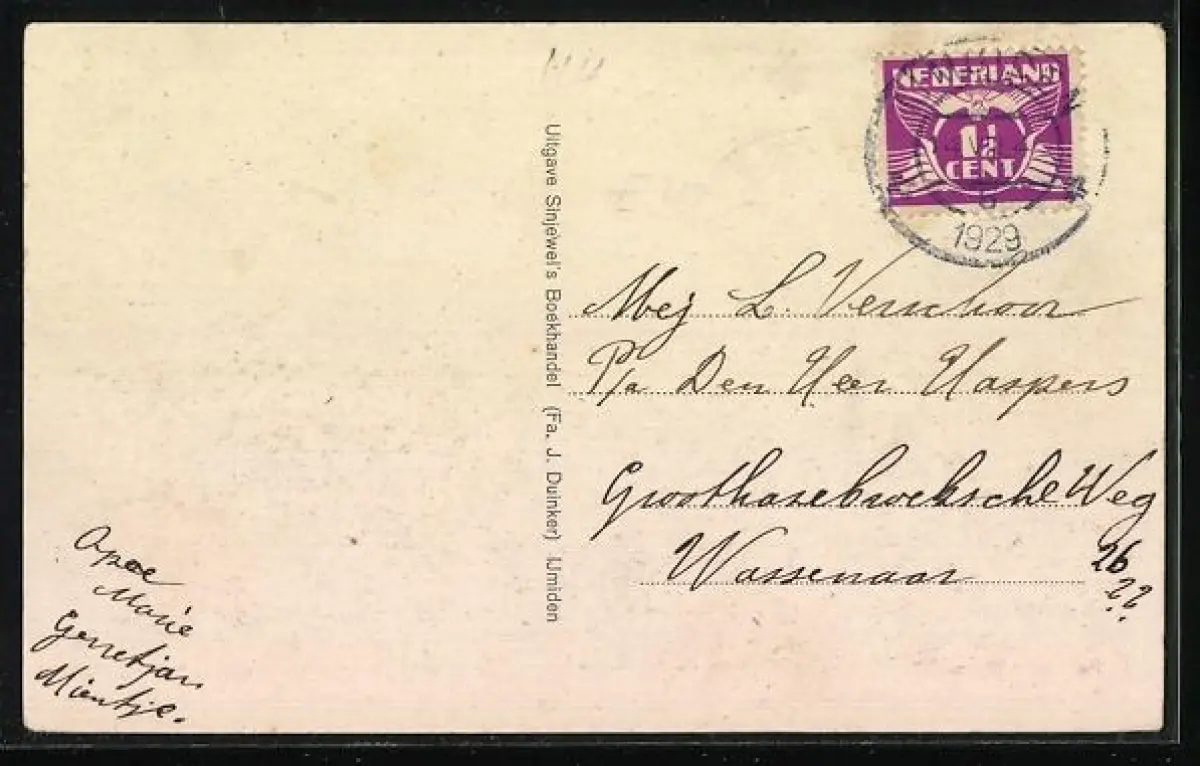 NEDERLAND
1½
CENT
1929
Uitgave Sinjewel's Boekhandel (Fa. J. Duinker) IJmuiden
Mej L. Verschoor
P/a Den Heer Haspers
Groothasebroeksche Weg
Wassenaar 26
??
Opoe
Marie
Gerretjan
Mientje.